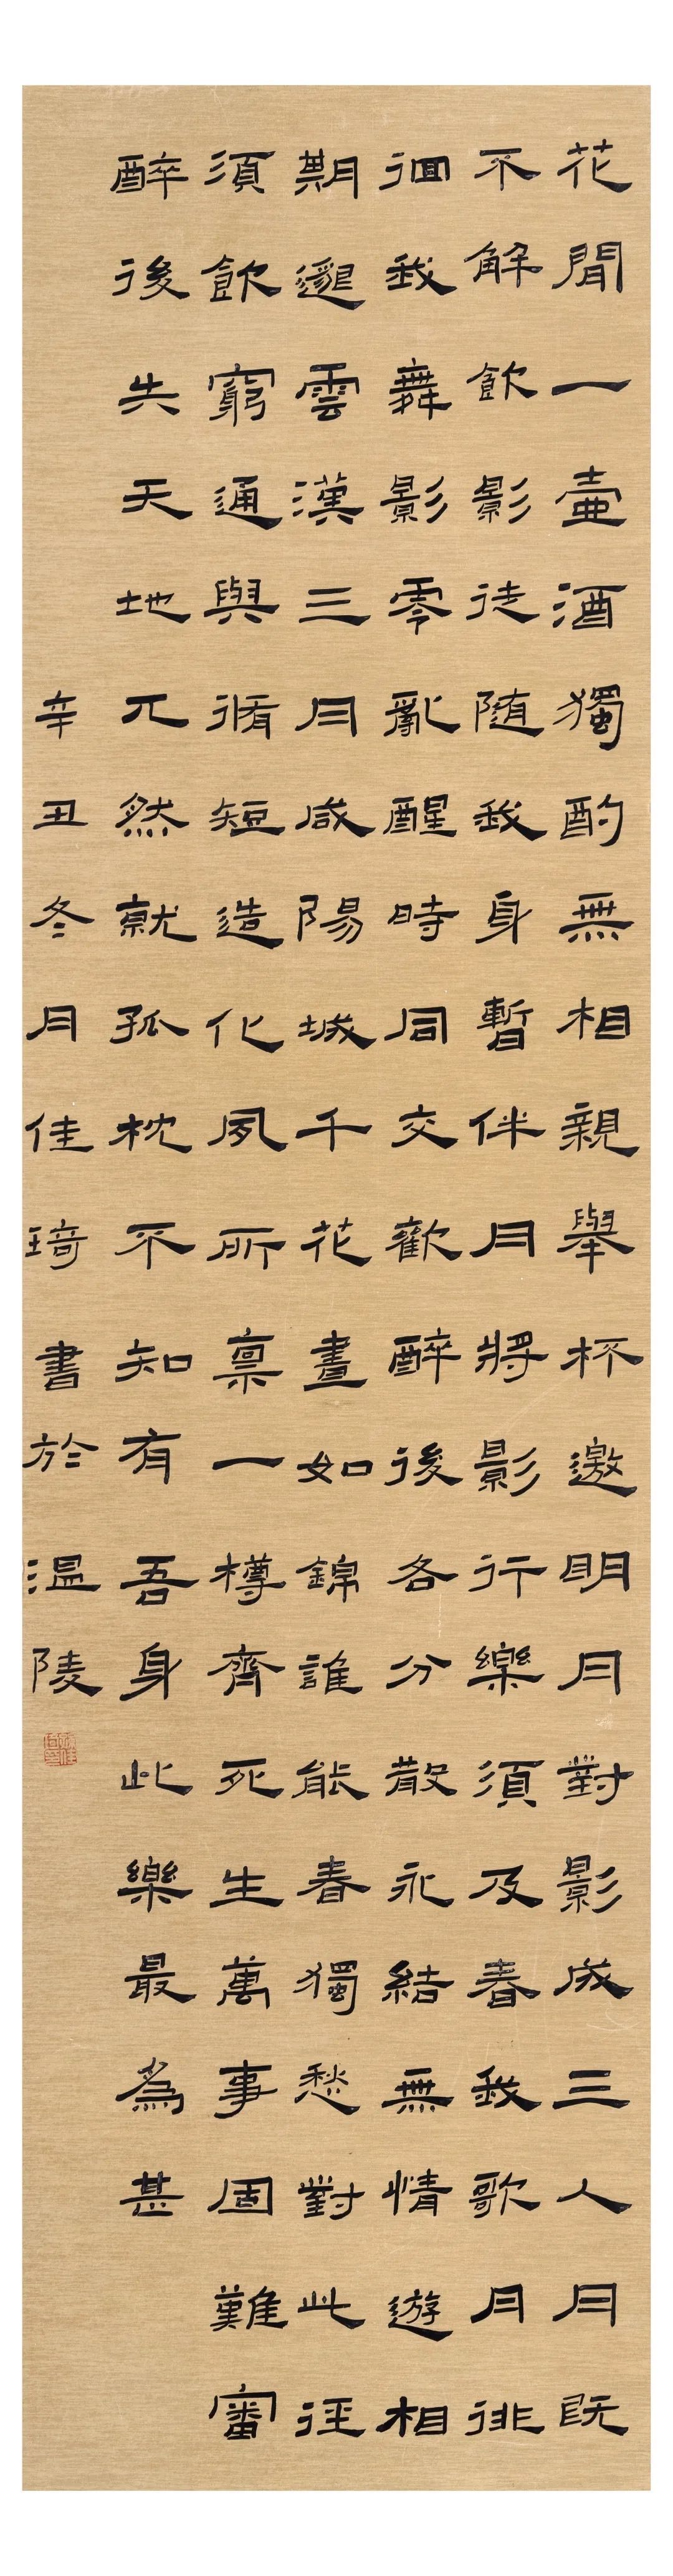 花間一壺酒獨酌無相親舉杯邀明月對影成三人月既
不解飲影徒随我身暫伴月將影行樂須及春我歌月徘
徊我舞影零亂醒時同交歡醉後各分散永結無情遊相
期邈雲漢三月咸陽城千花晝如錦誰能春獨愁對此徑
須飲窮通與脩短造化夙所稟一樽齊死生萬事固難審
醉後失天地兀然就孤枕不知有吾身此樂最為甚
辛丑冬月佳琦書於温陵